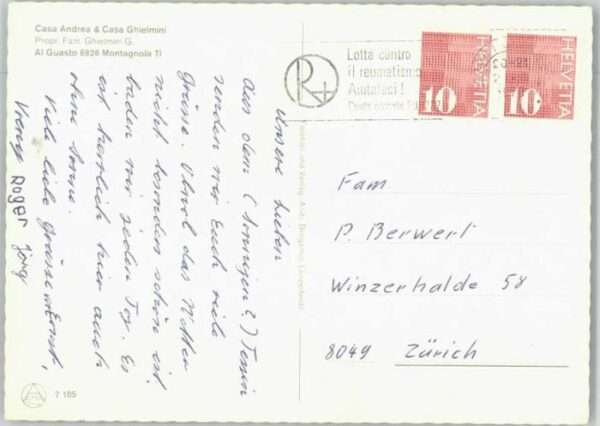 Casa Andrea & Casa Ghielmini
Propr. Fam. Ghielmini G.
Al Guasto 6926 Montagnola TI
Unsere Lieben
Aus dem (sonnigen?) Tessin
senden wir Euch viele
Grüsse. Obwohl das Wetter
nicht besonders schön ist
baden wir jeden Tag. Es
ist herrlich hier auch
ohne Sonne.
Viele liebe Grüsse
Roger Jörg
7 185
R+
Lotta contro
il reumatismo
Aiutateci!
HELVETIA
10
HELVETIA
10
Fam
P. Berwert
Winzerhalde 58
8049 Zürich